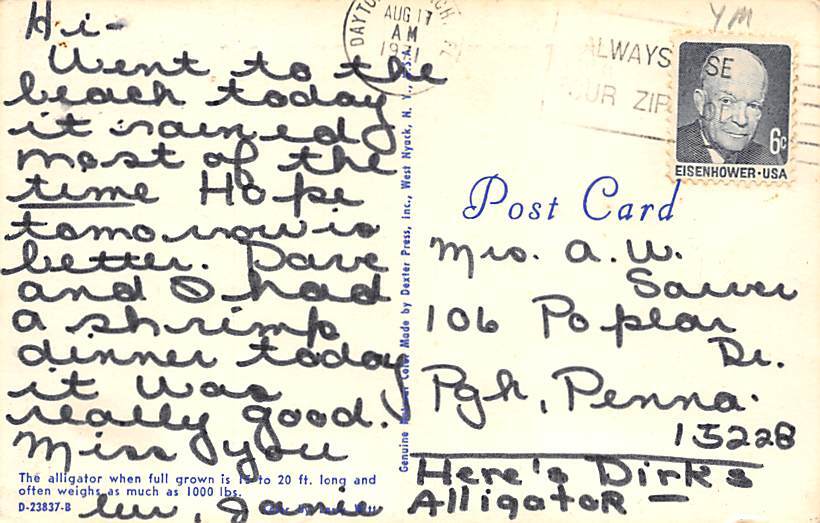 Hi-
Went to the
beach today
it rained
most of the
time Hope
tomorrow is
better. Dave
and I had
a shrimp
dinner today
it was
really good.
Miss you
luv, Janie
The alligator when full grown is 15 to 20 ft. long and
often weighs as much as 1000 lbs.
D-23837-B
Genuine Natural Color Made by Dexter Press, Inc., West Nyack, N. Y.,
AUG 17
AM
1971
YM
ALWAYS USE
YOUR ZIP
6c
EISENHOWER·USA
Post Card
Mrs. A.W.
106 Poplar
Dr.
Pgh, Penna.
15228
Here's Dirk's
Alligator —